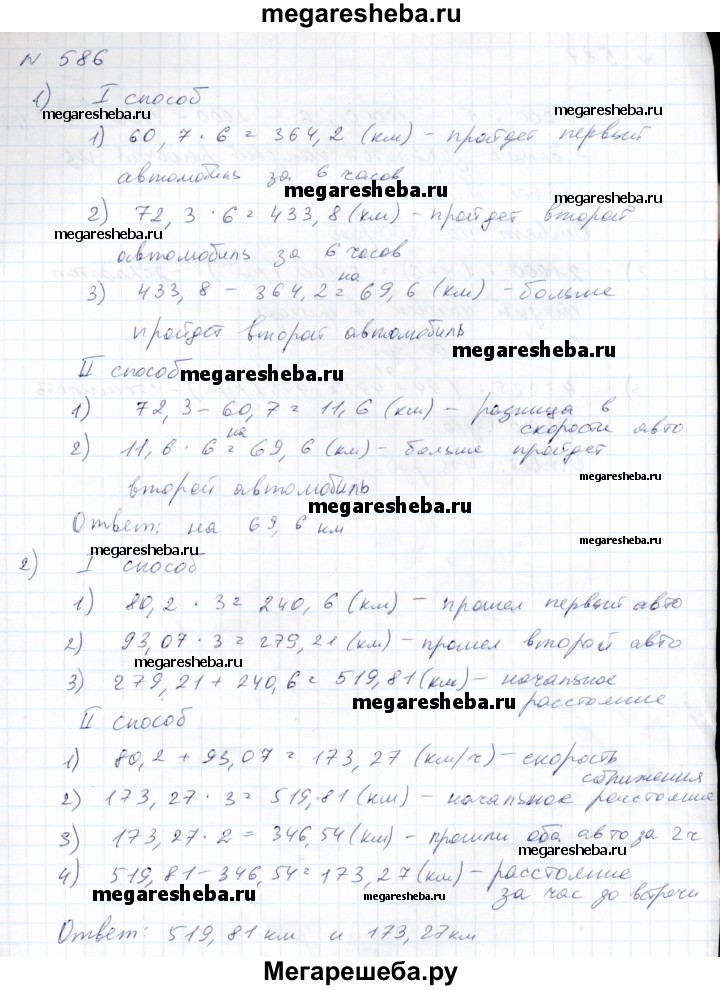 megaresheba.ru
N 586
1) I способ
megaresheba.ru megaresheba.ru
1) 60,7 · 6 = 364,2 (км) - пройдет первый
автомобиль за 6 часов
megaresheba.ru
2) 72,3 · 6 = 433,8 (км) - пройдет второй
megaresheba.ru megaresheba.ru
автомобиль за 6 часов
3) 433,8 - 364,2 = на 69,6 (км) - больше
пройдет второй автомобиль
megaresheba.ru
II способ
megaresheba.ru
1) 72,3 - 60,7 = 11,6 (км) - разница в
скорости авто
2) 11,6 · 6 = на 69,6 (км) - больше пройдет
megaresheba.ru
второй автомобиль
megaresheba.ru
Ответ: на 69,6 км
megaresheba.ru megaresheba.ru
2) I способ
1) 80,2 · 3 = 240,6 (км) - прошел первый авто
2) 93,07 · 3 = 279,21 (км) - прошел второй авто
megaresheba.ru
3) 279,21 + 240,6 = 519,81 (км) - начальное
расстояние
megaresheba.ru
II способ
1) 80,2 + 93,07 = 173,27 (км/ч) - скорость
сближения
2) 173,27 · 3 = 519,81 (км) - начальное расстояние
3) 173,27 · 2 = 346,54 (км) - прошли оба авто за 2 ч
megaresheba.ru
4) 519,81 - 346,54 = 173,27 (км) - расстояние
за час до встречи
megaresheba.ru megaresheba.ru megaresheba.ru
Ответ: 519,81 км и 173,27 км
Мегарешеба.ру